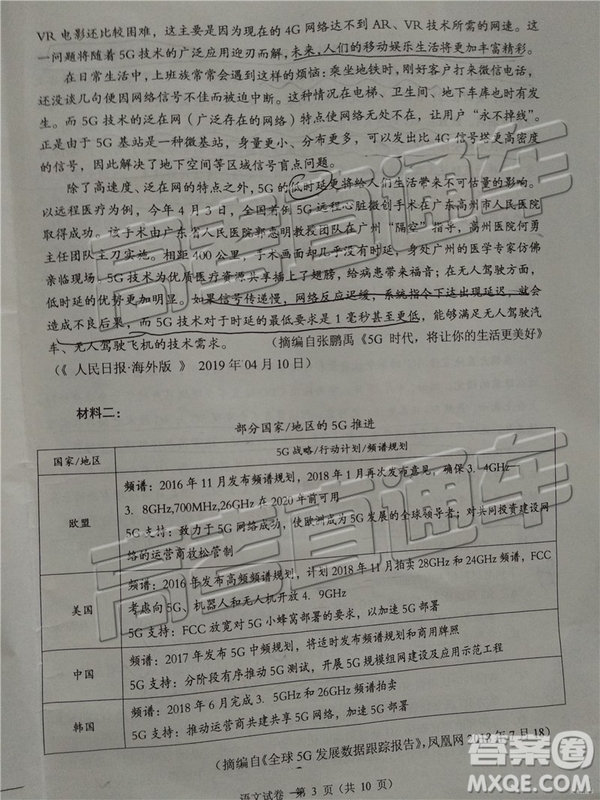 VR 电影还比较困难，这主要是因为现在的 4G 网络达不到 AR、VR 技术所需的网速。这
一问题将随着 5G 技术的广泛应用迎刃而解，未来，人们的移动娱乐生活将更加丰富精彩。
在日常生活中，上班族常常会遇到这样的烦恼：乘坐地铁时，刚好客户打来微信电话，
还没谈几句便因网络信号不佳而被迫中断。这种情况在电梯、卫生间、地下车库也时有发
生。而 5G 技术的泛在网（广泛存在的网络）特点使网络无处不在，让用户“永不掉线”。
正是由于 5G 基站是一种微基站，身量更小、分布更多，可以发出比 4G 信号塔更高密度
的信号，因此解决了地下空间等区域信号盲点问题。
除了高速度、泛在网的特点之外，5G 的低时延更将给人们生活带来不可估量的影响。
以远程医疗为例，今年 4 月 3 日，全国首例 5G 远程心脏微创手术在广东高州市人民医院
取得成功。该手术由广东省人民医院郭惠明教授团队在广州“隔空”指导，高州医院何勇
主任团队主刀实施。相距 400 公里，手术画面却几乎没有时延，身处广州的医学专家仿佛
亲临现场。5G 技术为优质医疗资源共享插上了翅膀，给病患带来福音；在无人驾驶方面，
低时延的优势更加明显。如果信号传递慢，网络反应迟缓，系统指令下达出现延迟，就会
造成不良后果，而 5G 技术对于时延的最低要求是 1 毫秒甚至更低，能够满足无人驾驶汽
车、无人驾驶飞机的技术需求。（摘编自张鹏禹《5G 时代，将让你的生活更美好》
（《 人民日报·海外版 》 2019 年 04 月 10 日）
材料二：
部分国家/地区的 5G 推进
国家/地区
5G 战略/行动计划/频谱规划
欧盟
频谱：2016 年 11 月发布频谱规划，2018 年 1 月再次发布意见，确保 3. 4GHz
3. 8GHz,700MHz,26GHz 在 2020 年前可用
5G 支持：致力于 5G 网络成功，使欧洲成为 5G 发展的全球领导者；对共同投资建设网
络的运营商放松管制
美国
频谱：2016 年发布高频频谱规划，计划 2018 年 11 月拍卖 28GHz 和 24GHz 频谱，FCC
考虑向 5G、机器人和无人机开放 4. 9GHz
5G 支持：FCC 放宽对 5G 小蜂窝部署的要求，以加速 5G 部署
中国
频谱：2017 年发布 5G 中频规划，将适时发布频谱和商用牌照
5G 支持：分阶段有序推动 5G 测试，开展 5G 规模组网建设及应用示范工程
韩国
频谱：2018 年 6 月完成 3. 5GHz 和 26GHz 频谱拍卖
5G 支持：推动运营商共建共享 5G 网络，加速 5G 部署
（摘编自《全球 5G 发展数据跟踪报告》，凤凰网 2018 年 7 月 18）
语文试卷 第 3 页（共 10 页）
高考直通车
高考直通车
答案圈